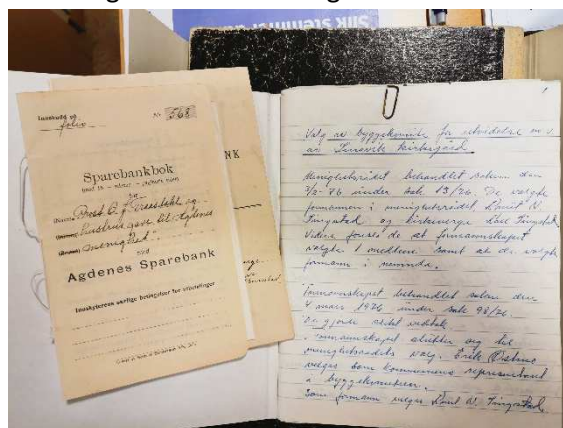 Slik stemmer du
Innskudd og
folio
Nr. 568
Sparebankbok
og
hustrus gave til Agdenes
menighet"
ved
Agdenes Sparebank
Innskyterens særlige betingelser for utbetalinger
NK
Valg av byggekomite for utvidelse m.v.
av Lensvik kirkegård.
Menighetsrådet behandlet saken den
3/2-76 under sak 13/76. De valgte
formannen i menighetsrådet
Tingstad, og kirkeverge Tingstad
Videre foreslo de at formannskapet
valgte 1 medlem samt at de valgte
formann i nemnda.
Formannskapet behandlet saken den
4 mars 1976 under sak 98/76.
De gjorde slikt vedtak.
Formannskapet slutter seg til
menighetsrådets valg. Erik
velges som kommunens representant
i byggekomiteen.
Som formann velges Tingstad